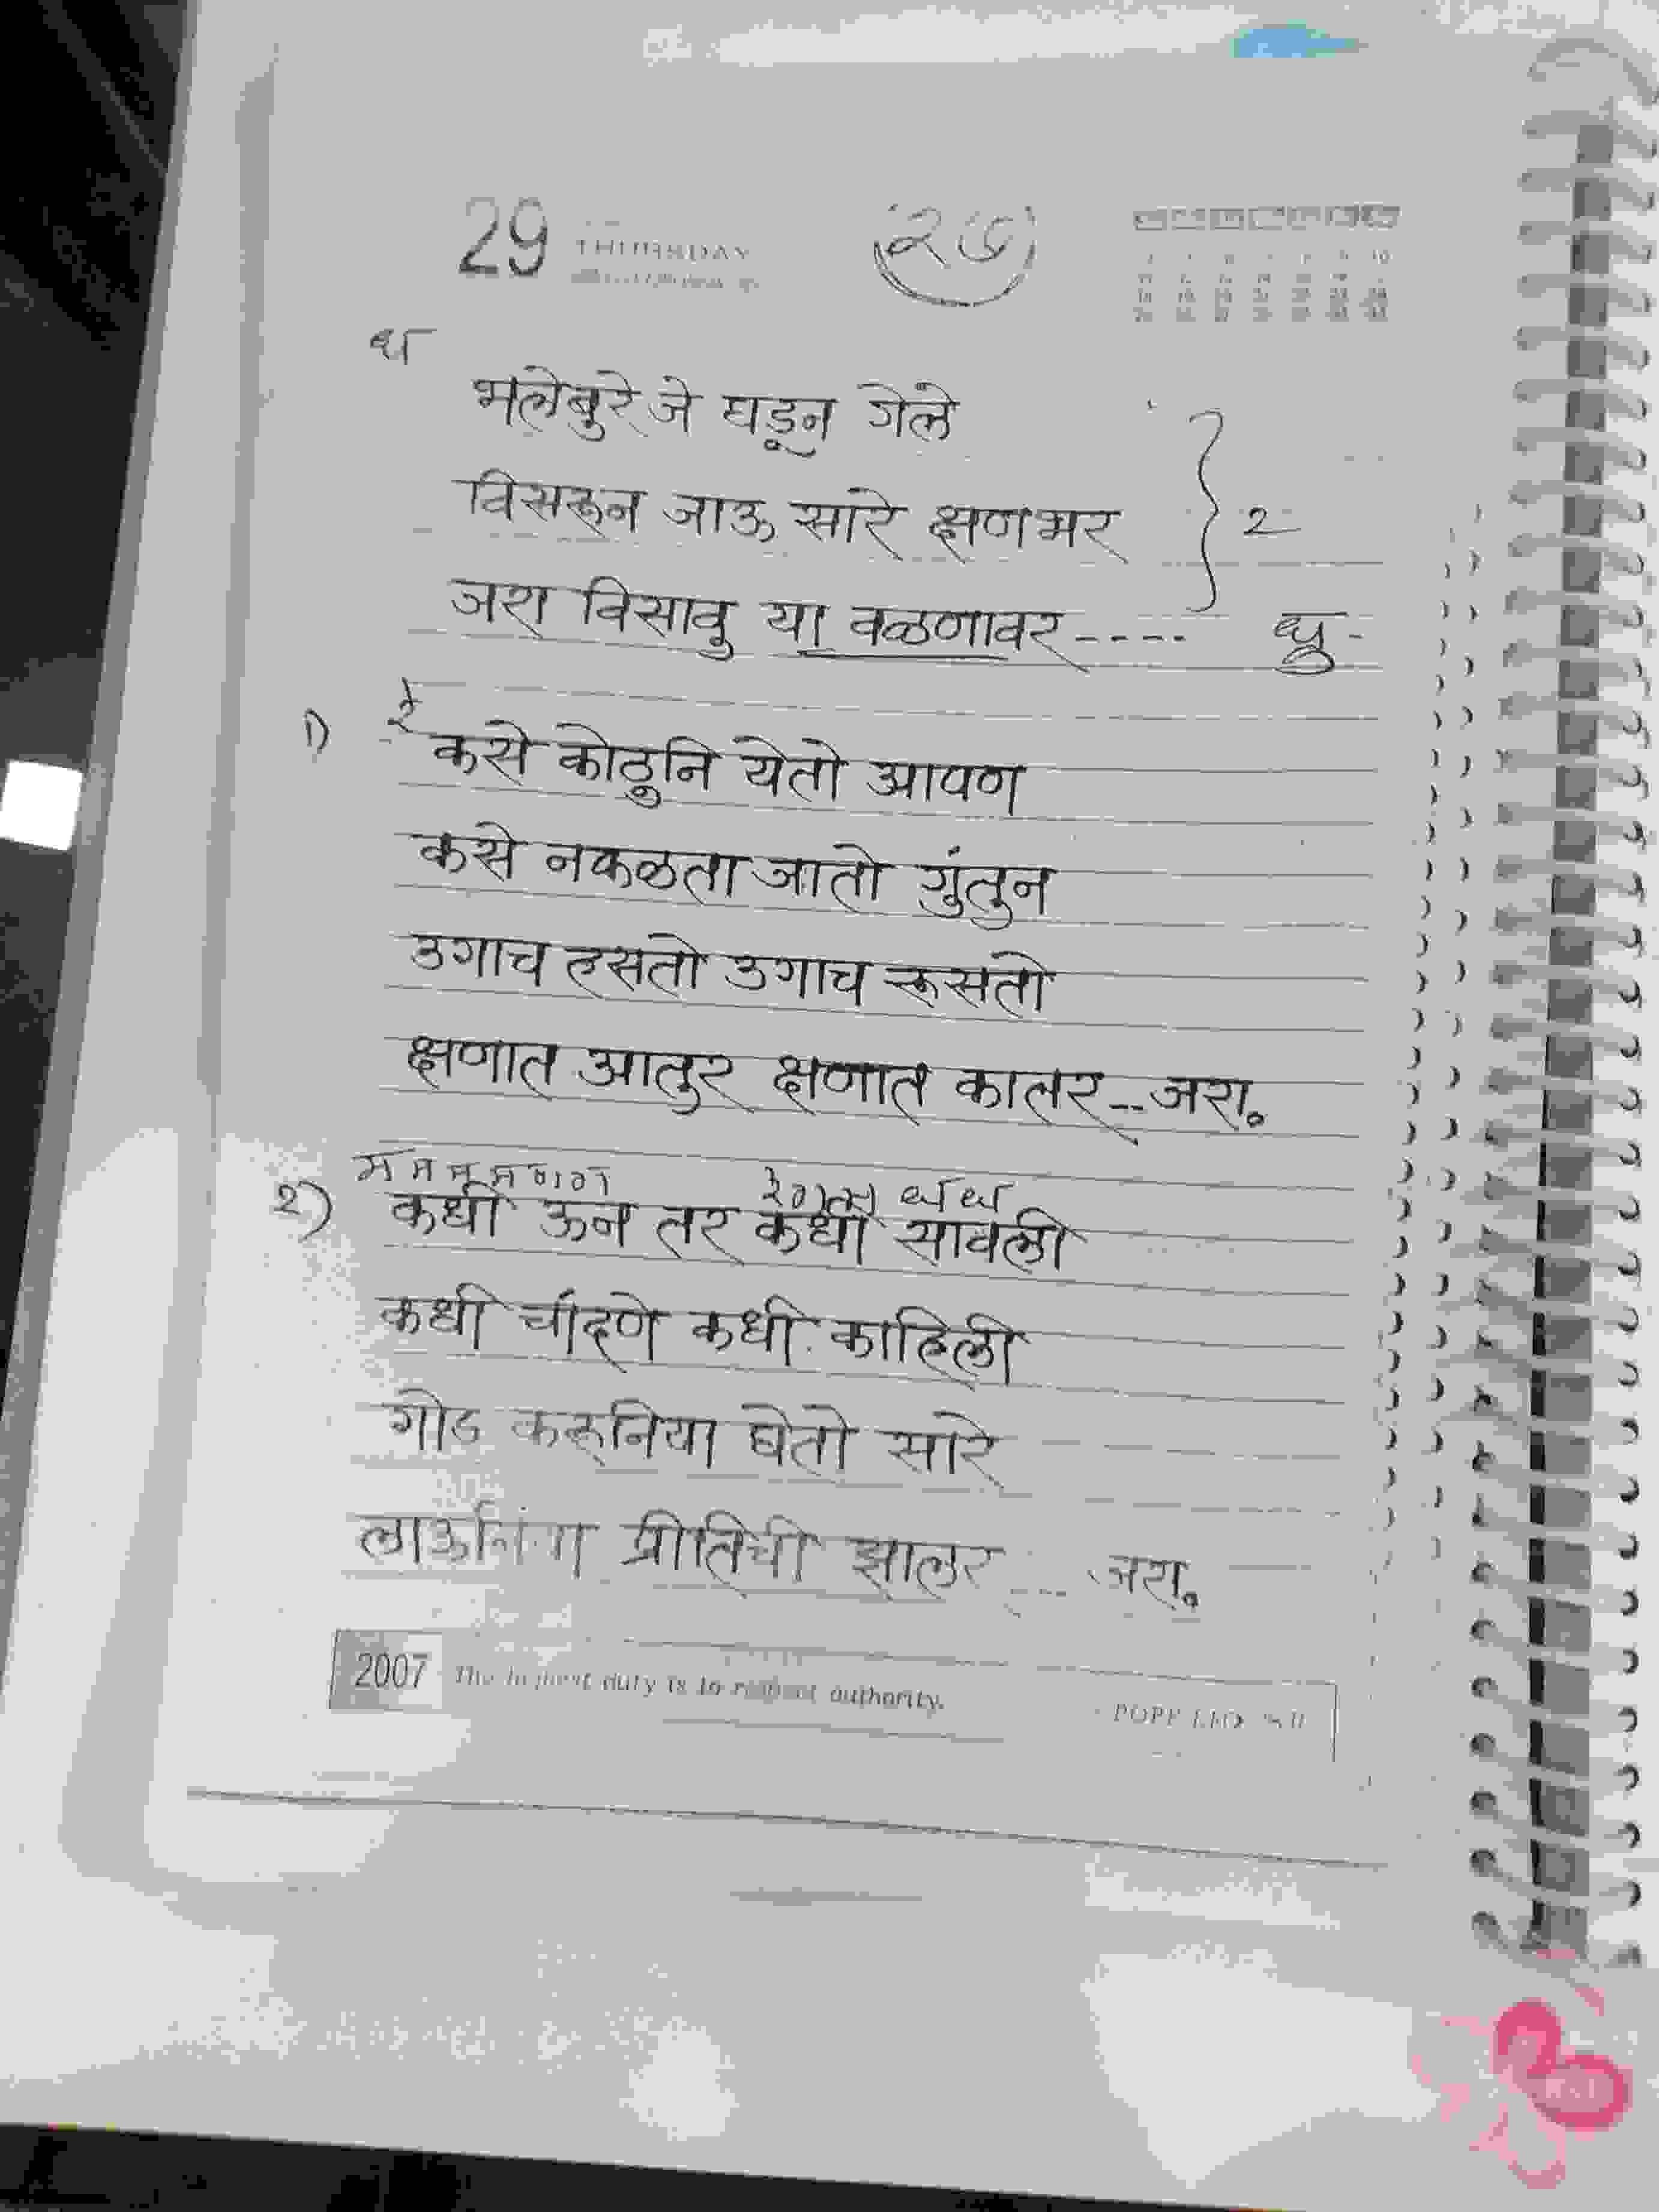 29 THURSDAY
ध
भलेबुरे जे घडून गेले
विसरून जाऊ सारे क्षणभर } 2
जरा विसावु या वळणावर---- धृ-
1) रे
कसे कोठुनि येतो आपण
कसे नकळता जातो गुंतुन
उगाच हसतो उगाच रूसतो
क्षणात आतुर क्षणात कातर--जरा.
२) कधी ऊन तर कधी सावली
कधी चांदणे कधी काहिली
गोड करूनिया घेतो सारे
लाऊनिया प्रीतिची झालर --- जरा.
2007 The highest duty is to respect authority.
- POPE LEO XIII